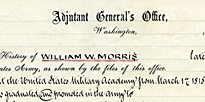 Adjutant General's Office,
Washington,
History of WILLIAM W. MORRIS late
ates Army, as shown by the files of this office.
at the United States Military Academy from March 17, 1815
as graduated and promoted in the army to